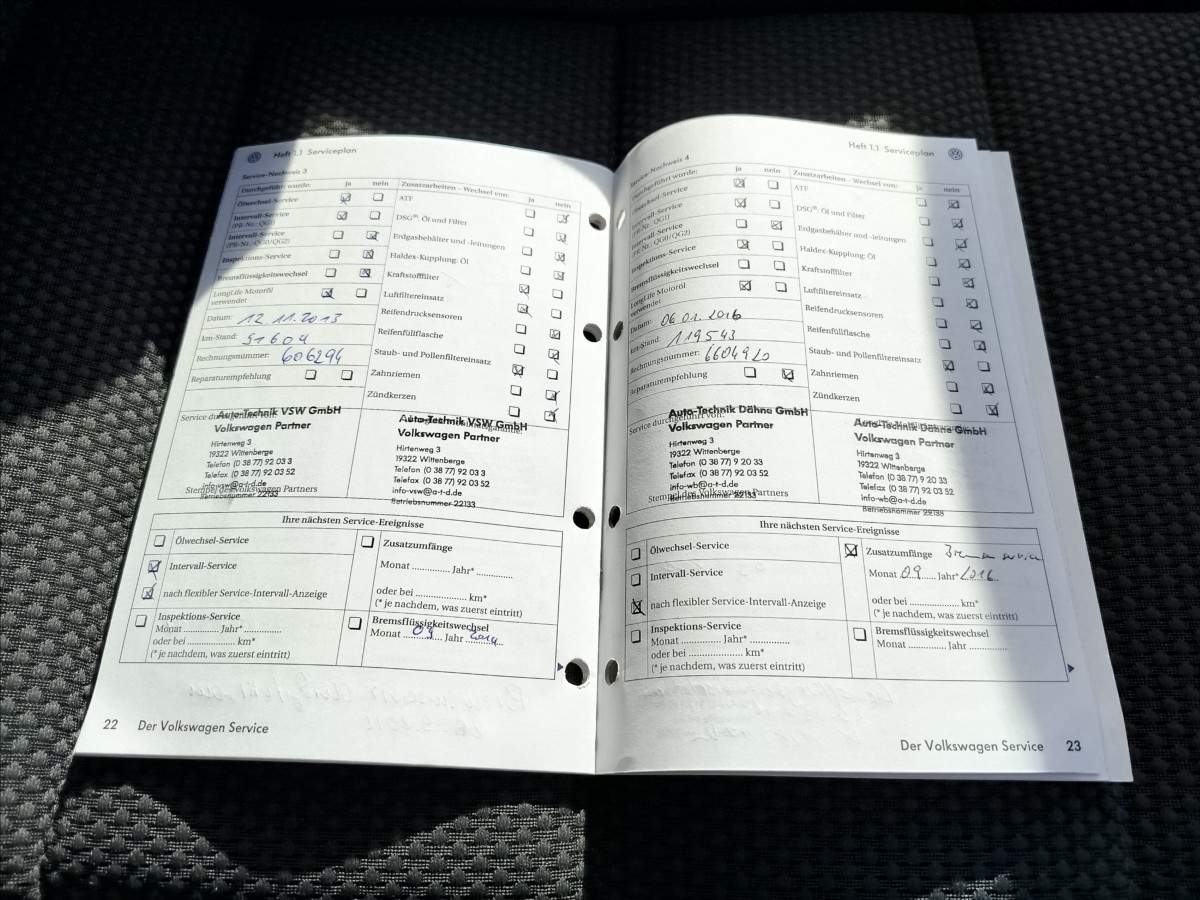 Heft 1.1 Serviceplan
Service-Nachweis 3
Durchgeführt wurde: ja nein
Ölwechsel-Service
Intervall-Service
(PR-Nr.: QG1)
Intervall-Service
(PR-Nr.: QG0/QG2)
Inspektions-Service
Bremsflüssigkeitswechsel
LongLife Motoröl
verwendet
Datum: 12.11.2013
km-Stand: 51604
Rechnungsnummer: 606294
Reparaturempfehlung
Zusatzarbeiten - Wechsel von: ja nein
ATF
DSG®: Öl und Filter
Erdgasbehälter und -leitungen
Haldex-Kupplung: Öl
Kraftstofffilter
Luftfiltereinsatz
Reifendrucksensoren
Reifenfüllflasche
Staub- und Pollenfiltereinsatz
Zahnriemen
Zündkerzen
Service durchgeführt von:
Auto-Technik VSW GmbH
Volkswagen Partner
Hirtenweg 3
19322 Wittenberge
Telefon (0 38 77) 92 03 3
Telefax (0 38 77) 92 03 52
info-vsw@a-t-d.de
Betriebsnummer 22133
Stempel des Volkswagen Partners
Auto-Technik VSW GmbH
Volkswagen Partner
Hirtenweg 3
19322 Wittenberge
Telefon (0 38 77) 92 03 3
Telefax (0 38 77) 92 03 52
info-vsw@a-t-d.de
Betriebsnummer 22133
Ihre nächsten Service-Ereignisse
Ölwechsel-Service
Intervall-Service
nach flexibler Service-Intervall-Anzeige
Inspektions-Service
Monat ............ Jahr* ............
oder bei .................... km*
(* je nachdem, was zuerst eintritt)
Zusatzumfänge
Monat ............ Jahr* ............
oder bei .................... km*
(* je nachdem, was zuerst eintritt)
Bremsflüssigkeitswechsel
Monat 09 Jahr 2014
22 Der Volkswagen Service
Heft 1.1 Serviceplan
Service-Nachweis 4
Durchgeführt wurde: ja nein
Ölwechsel-Service
Intervall-Service
(PR-Nr.: QG1)
Intervall-Service
(PR-Nr.: QG0/QG2)
Inspektions-Service
Bremsflüssigkeitswechsel
LongLife Motoröl
verwendet
Datum: 06.01.2016
km-Stand: 119543
Rechnungsnummer: 6604920
Reparaturempfehlung
Zusatzarbeiten - Wechsel von: ja nein
ATF
DSG®: Öl und Filter
Erdgasbehälter und -leitungen
Haldex-Kupplung: Öl
Kraftstofffilter
Luftfiltereinsatz
Reifendrucksensoren
Reifenfüllflasche
Staub- und Pollenfiltereinsatz
Zahnriemen
Zündkerzen
Service durchgeführt von:
Auto-Technik Dähne GmbH
Volkswagen Partner
Hirtenweg 3
19322 Wittenberge
Telefon (0 38 77) 9 20 33
Telefax (0 38 77) 92 03 52
info-wb@a-t-d.de
Betriebsnummer 22133
Stempel des Volkswagen Partners
Auto-Technik Dähne GmbH
Volkswagen Partner
Hirtenweg 3
19322 Wittenberge
Telefon (0 38 77) 9 20 33
Telefax (0 38 77) 92 03 52
info-wb@a-t-d.de
Betriebsnummer 22133
Ihre nächsten Service-Ereignisse
Ölwechsel-Service
Intervall-Service
nach flexibler Service-Intervall-Anzeige
Inspektions-Service
Monat ............ Jahr* ............
oder bei .................... km*
(* je nachdem, was zuerst eintritt)
Zusatzumfänge
Monat 09 Jahr* 2016
oder bei .................... km*
(* je nachdem, was zuerst eintritt)
Bremsflüssigkeitswechsel
Monat ............ Jahr ............
Der Volkswagen Service 23